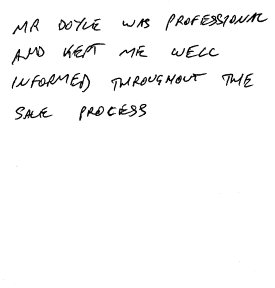 MR DOYLE WAS PROFESSIONAL
AND KEPT ME WELL
INFORMED THROUGHOUT THE
SALE PROCESS